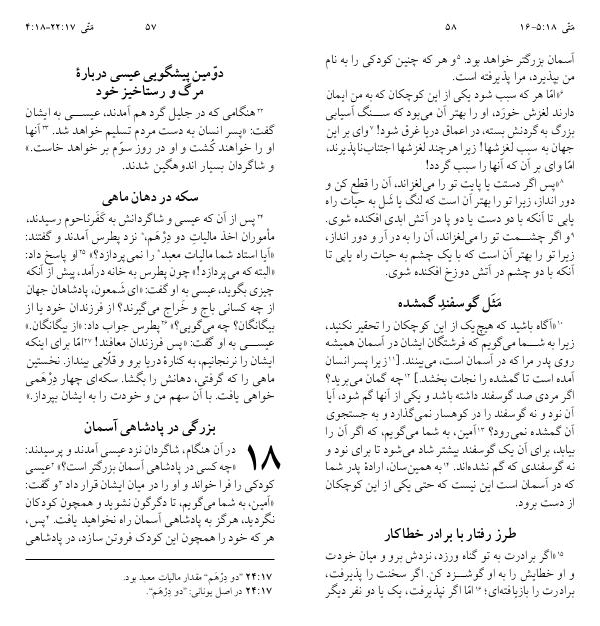 مَتّی ۲۲:۱۷–۴:۱۸
۵۷
دوّمین پیشگویی عیسی دربارهٔ
مرگ و رستاخیز خود
۲۲ هنگامی که در جلیل گرد هم آمدند، عیسـی به ایشان
گفت: «پسر انسان به دست مردم تسلیم خواهد شد. ۲۳ آنها
او را خواهند کُشت و او در روز سوّم بر خواهد خاست.»
و شاگردان بسیار اندوهگین شدند.
سکه در دهان ماهی
۲۴ پس از آن که عیسی و شاگردانش به کَفَرناحوم رسیدند،
مأموران اخذ مالیاتِ دو دِرْهَم،ᵃ نزد پطرس آمدند و گفتند:
«آیا استاد شما مالیات معبدᵇ را نمی‌پردازد؟» ۲۵ او پاسخ داد:
«البته که می‌پردازد!» چون پطرس به خانه درآمد، پیش از آنکه
چیزی بگوید، عیسی به او گفت: «ای شَمعون، پادشاهان جهان
از چه کسانی باج و خَراج می‌گیرند؟ از فرزندان خود یا از
بیگانگان؟ چه می‌گویی؟» ۲۶ پطرس جواب داد: «از بیگانگان.»
عیسـی به او گفت: «پس فرزندان معافند! ۲۷ امّا برای اینکه
ایشان را نرنجانیم، به کنارهٔ دریا برو و قلّابی بینداز. نخستین
ماهی را که گرفتی، دهانش را بگشا. سکه‌ای چهار دِرْهَمی
خواهی یافت. با آن سهم من و خودت را به ایشان بپرداز.»
بزرگی در پادشاهی آسمان
۱۸ در آن هنگام، شاگردان نزد عیسی آمدند و پرسیدند:
«چه کسی در پادشاهی آسمان بزرگتر است؟» ۲ عیسی
کودکی را فرا خواند و او را در میان ایشان قرار داد ۳ و گفت:
«آمین، به شما می‌گویم، تا دگرگون نشوید و همچون کودکان
نگردید، هرگز به پادشاهی آسمان راه نخواهید یافت. ۴ پس،
هر که خود را همچون این کودک فروتن سازد، در پادشاهی
۲۴:۱۷ ”دو دِرْهَم“ مقدار مالیات معبد بود.
۲۴:۱۷ در اصل یونانی: ”دو دِرْهَم“.
مَتّی ۵:۱۸-۱۶
۵۸
آسمان بزرگتر خواهد بود. ۵ و هر که چنین کودکی را به نام
من بپذیرد، مرا پذیرفته است.
۶ «امّا هر که سبب شود یکی از این کوچکان که به من ایمان
دارند لغزش خورَد، او را بهتر آن می‌بود که ســنگ آسیابی
بزرگ به گردنش بسته، در اعماق دریا غرق شود! ۷ وای بر این
جهان به سبب لغزشها! زیرا هرچند لغزشها اجتناب‌ناپذیرند،
امّا وای بر آن که آنها را سبب گردد!
۸ «پس اگر دستت یا پایت تو را می‌لغزاند، آن را قطع کن و
دور انداز، زیرا تو را بهتر آن است که لنگ یا شَل به حیات راه
یابی تا آنکه با دو دست یا دو پا در آتش ابدی افکنده شوی.
۹ و اگر چشــمت تو را می‌لغزاند، آن را به در آر و دور انداز،
زیرا تو را بهتر آن است که با یک چشم به حیات راه یابی تا
آنکه با دو چشم در آتش دوزخ افکنده شوی.
مَثَل گوسفندِ گمشده
۱۰ «آگاه باشید که هیچ یک از این کوچکان را تحقیر نکنید،
زیرا به شــما می‌گویم که فرشتگان ایشان در آسمان همیشه
روی پدر مرا که در آسمان است، می‌بینند. [۱۱ زیرا پسر انسان
آمده است تا گمشده را نجات بخشد.] ۱۲ چه گمان می‌برید؟
اگر مردی صد گوسفند داشته باشد و یکی از آنها گم شود، آیا
آن نود و نه گوسفند را در کوهسار نمی‌گذارد و به جستجوی
آن گمشده نمی‌رود؟ ۱۳ آمین، به شما می‌گویم، که اگر آن را
بیابد، برای آن یک گوسفند بیشتر شاد می‌شود تا برای نود و
نه گوسفندی که گم نشده‌اند. ۱۴ به همین‌سان، ارادهٔ پدر شما
که در آسمان است این نیست که حتی یکی از این کوچکان
از دست برود.
طرز رفتار با برادر خطاکار
۱۵ «اگر برادرت به تو گناه ورزد، نزدش برو و میان خودت
و او خطایش را به او گوشــزد کن. اگر سخنت را پذیرفت،
برادرت را بازیافته‌ای؛ ۱۶ امّا اگر نپذیرفت، یک یا دو نفر دیگر